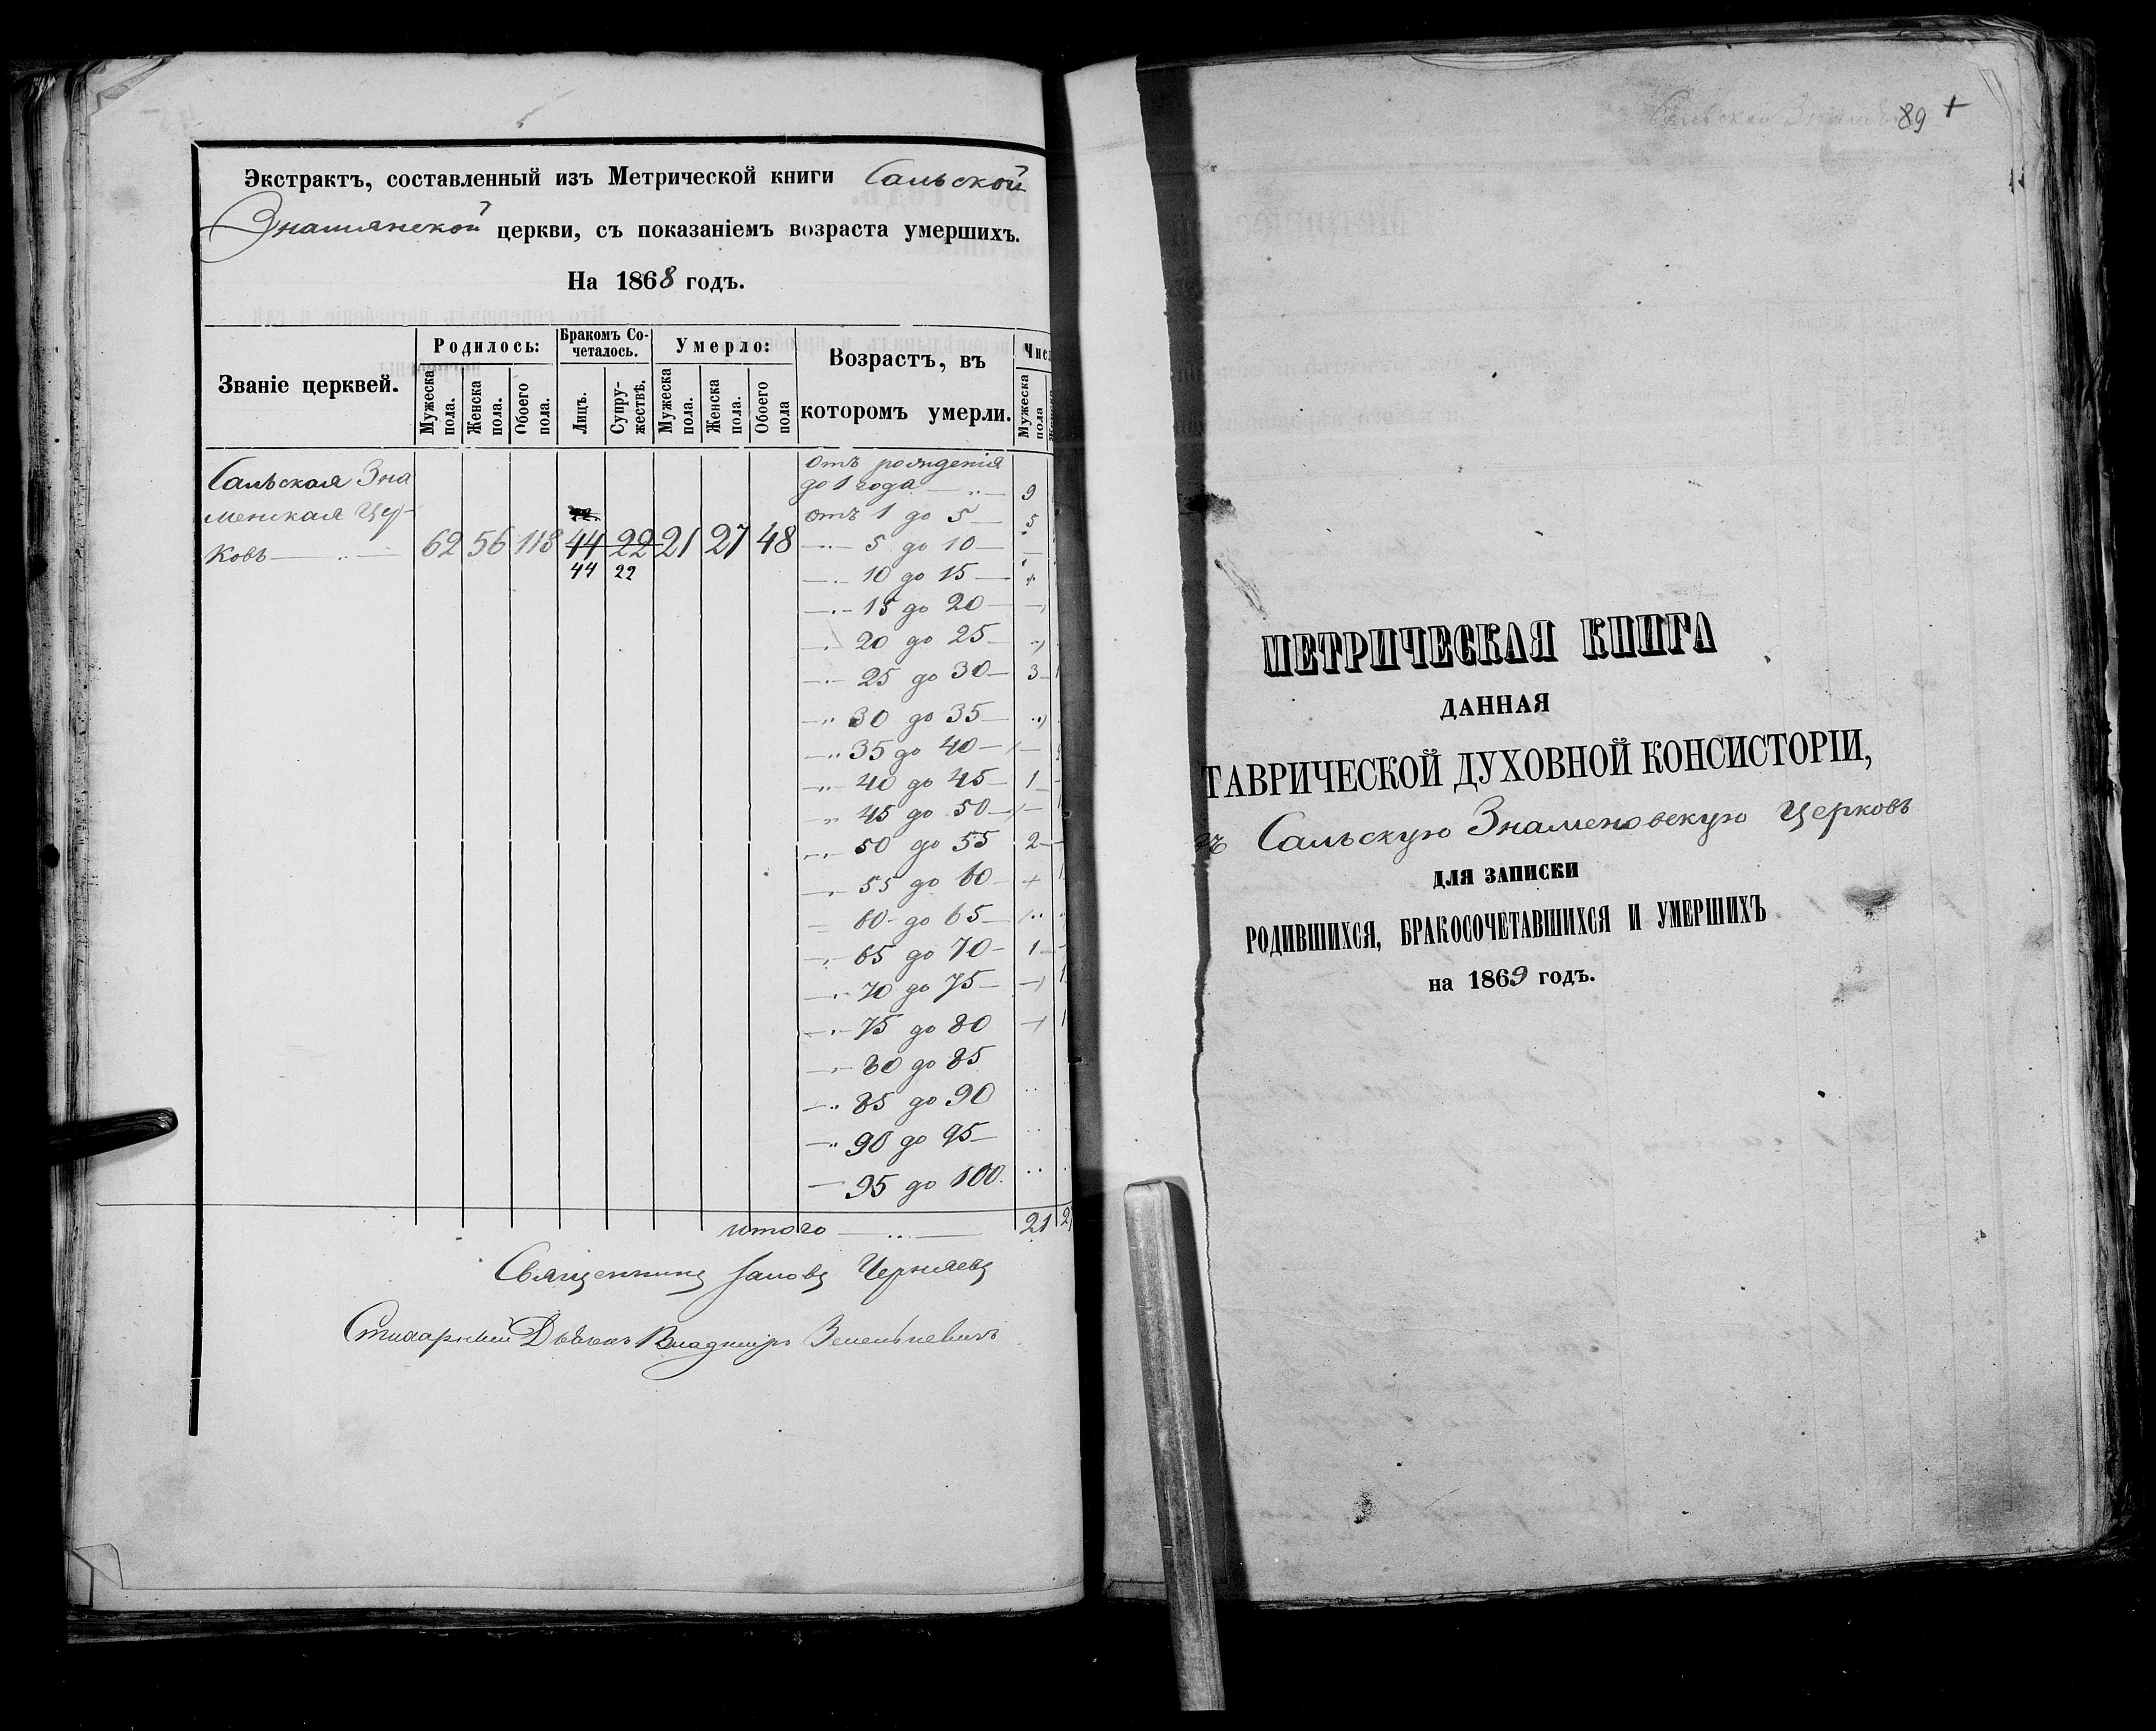 Экстрактъ, составленный изъ Метрической книги Сальской
Знамянской церкви, съ показаніемъ возраста умершихъ.
На 1868 годъ.
Званіе церквей.
Родилось:
Бракомъ Со-
четалось.
Умерло:
Возрастъ, въ
которомъ умерли.
Мужеска
пола.
Женска
пола.
Обоего
пола.
Лицъ.
Супру-
жествъ.
Мужеска
пола.
Женска
пола.
Обоего
пола
Мужеска
пола
Сальская Зна
менская Цер-
ковъ
62 56 118 44 22 21 27 48
44 22
отъ рожденія
до 1 года 9
отъ 1 до 5 5
5 до 10
10 до 15
15 до 20
20 до 25
25 до 30 3
30 до 35
35 до 40
40 до 45 1
45 до 50
50 до 55 2
55 до 60
60 до 65
65 до 70 1
70 до 75
75 до 80
80 до 85
85 до 90
90 до 95
95 до 100.
итого 21
Священникъ Іаковъ Черняевъ
Владимиръ
89
МЕТРИЧЕСКАЯ КНИГА
ДАННАЯ
ТАВРИЧЕСКОЙ ДУХОВНОЙ КОНСИСТОРІИ,
въ Сальскую Знаменовскую Церковъ
ДЛЯ ЗАПИСКИ
РОДИВШИХСЯ, БРАКОСОЧЕТАВШИХСЯ И УМЕРШИХЪ
на 1869 годъ.